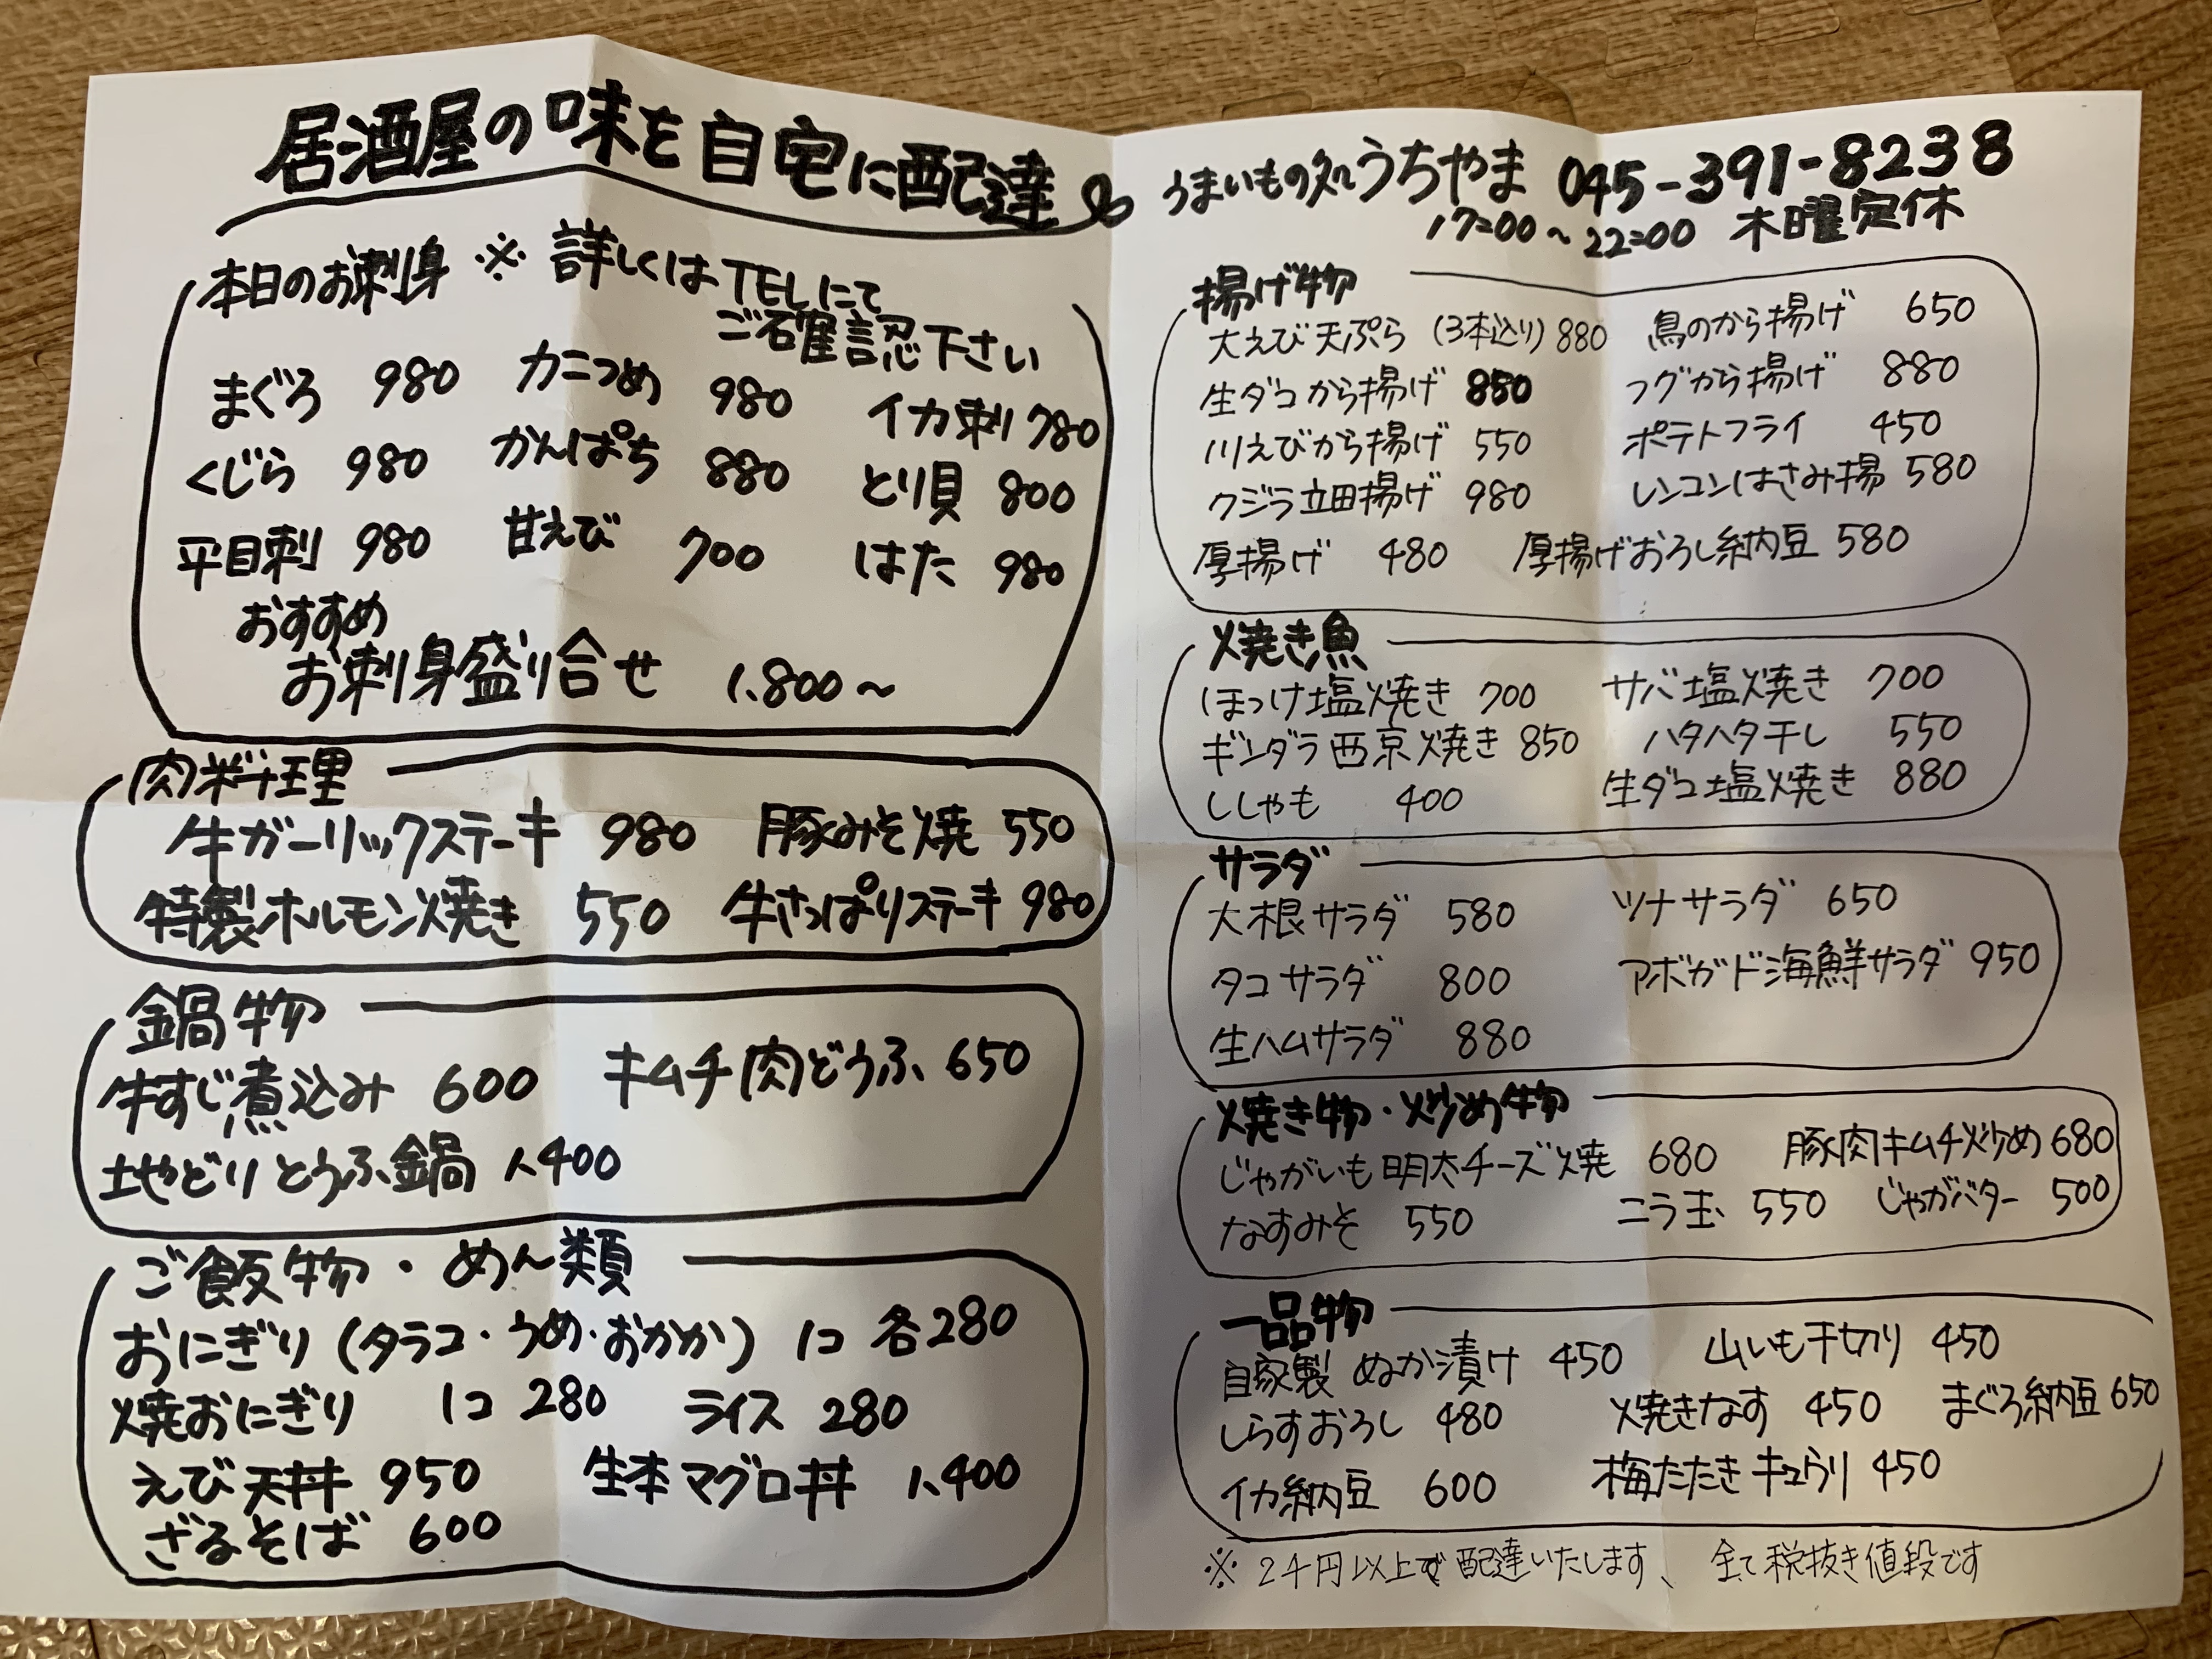 居酒屋の味を自宅に配達
本日のお刺身 ※ 詳しくはTELにて
ご確認下さい
まぐろ 980 カニつめ 980 イカ刺 780
くじら 980 かんぱち 880 とり貝 800
平目刺 980 甘えび 700 はた 980
おすすめ
お刺身盛り合せ 1,800~
肉料理
牛ガーリックステーキ 980 豚みそ焼 550
特製ホルモン焼き 550 牛さっぱりステーキ 980
鍋物
牛すじ煮込み 600 キムチ肉どうふ 650
地やどりとうふ鍋 1,400
ご飯物・めん類
おにぎり(タラコ・うめ・おかか) 1コ 各280
焼おにぎり 1コ 280 ライス 280
えび天丼 950 生本マグロ丼 1,400
ざるそば 600
うまいもの処うちやま 045-391-8238
17:00~22:00 木曜定休
揚げ物
大えび天ぷら (3本込り) 880 鳥のから揚げ 650
生ダコから揚げ 850 フグから揚げ 880
川えびから揚げ 550 ポテトフライ 450
クジラ立田揚げ 980 レンコンはさみ揚 580
厚揚げ 480 厚揚げおろし納豆 580
焼き魚
ほっけ塩焼き 700 サバ塩焼き 700
ギンダラ西京焼き 850 ハタハタ干し 550
ししゃも 400 生ダコ塩焼き 880
サラダ
大根サラダ 580 ツナサラダ 650
タコサラダ 800 アボガド海鮮サラダ 950
生ハムサラダ 880
焼き物・炒め物
じゃがいも明太チーズ焼 680 豚肉キムチ炒め 680
なすみそ 550 ニラ玉 550 じゃがバター 500
一品物
自家製 ぬか漬け 450 山いも千切り 450
しらすおろし 480 焼きなす 450 まぐろ納豆 650
イカ納豆 600 梅たたきキュウリ 450
※ 2千円以上で配達いたします、 全て税抜き値段です